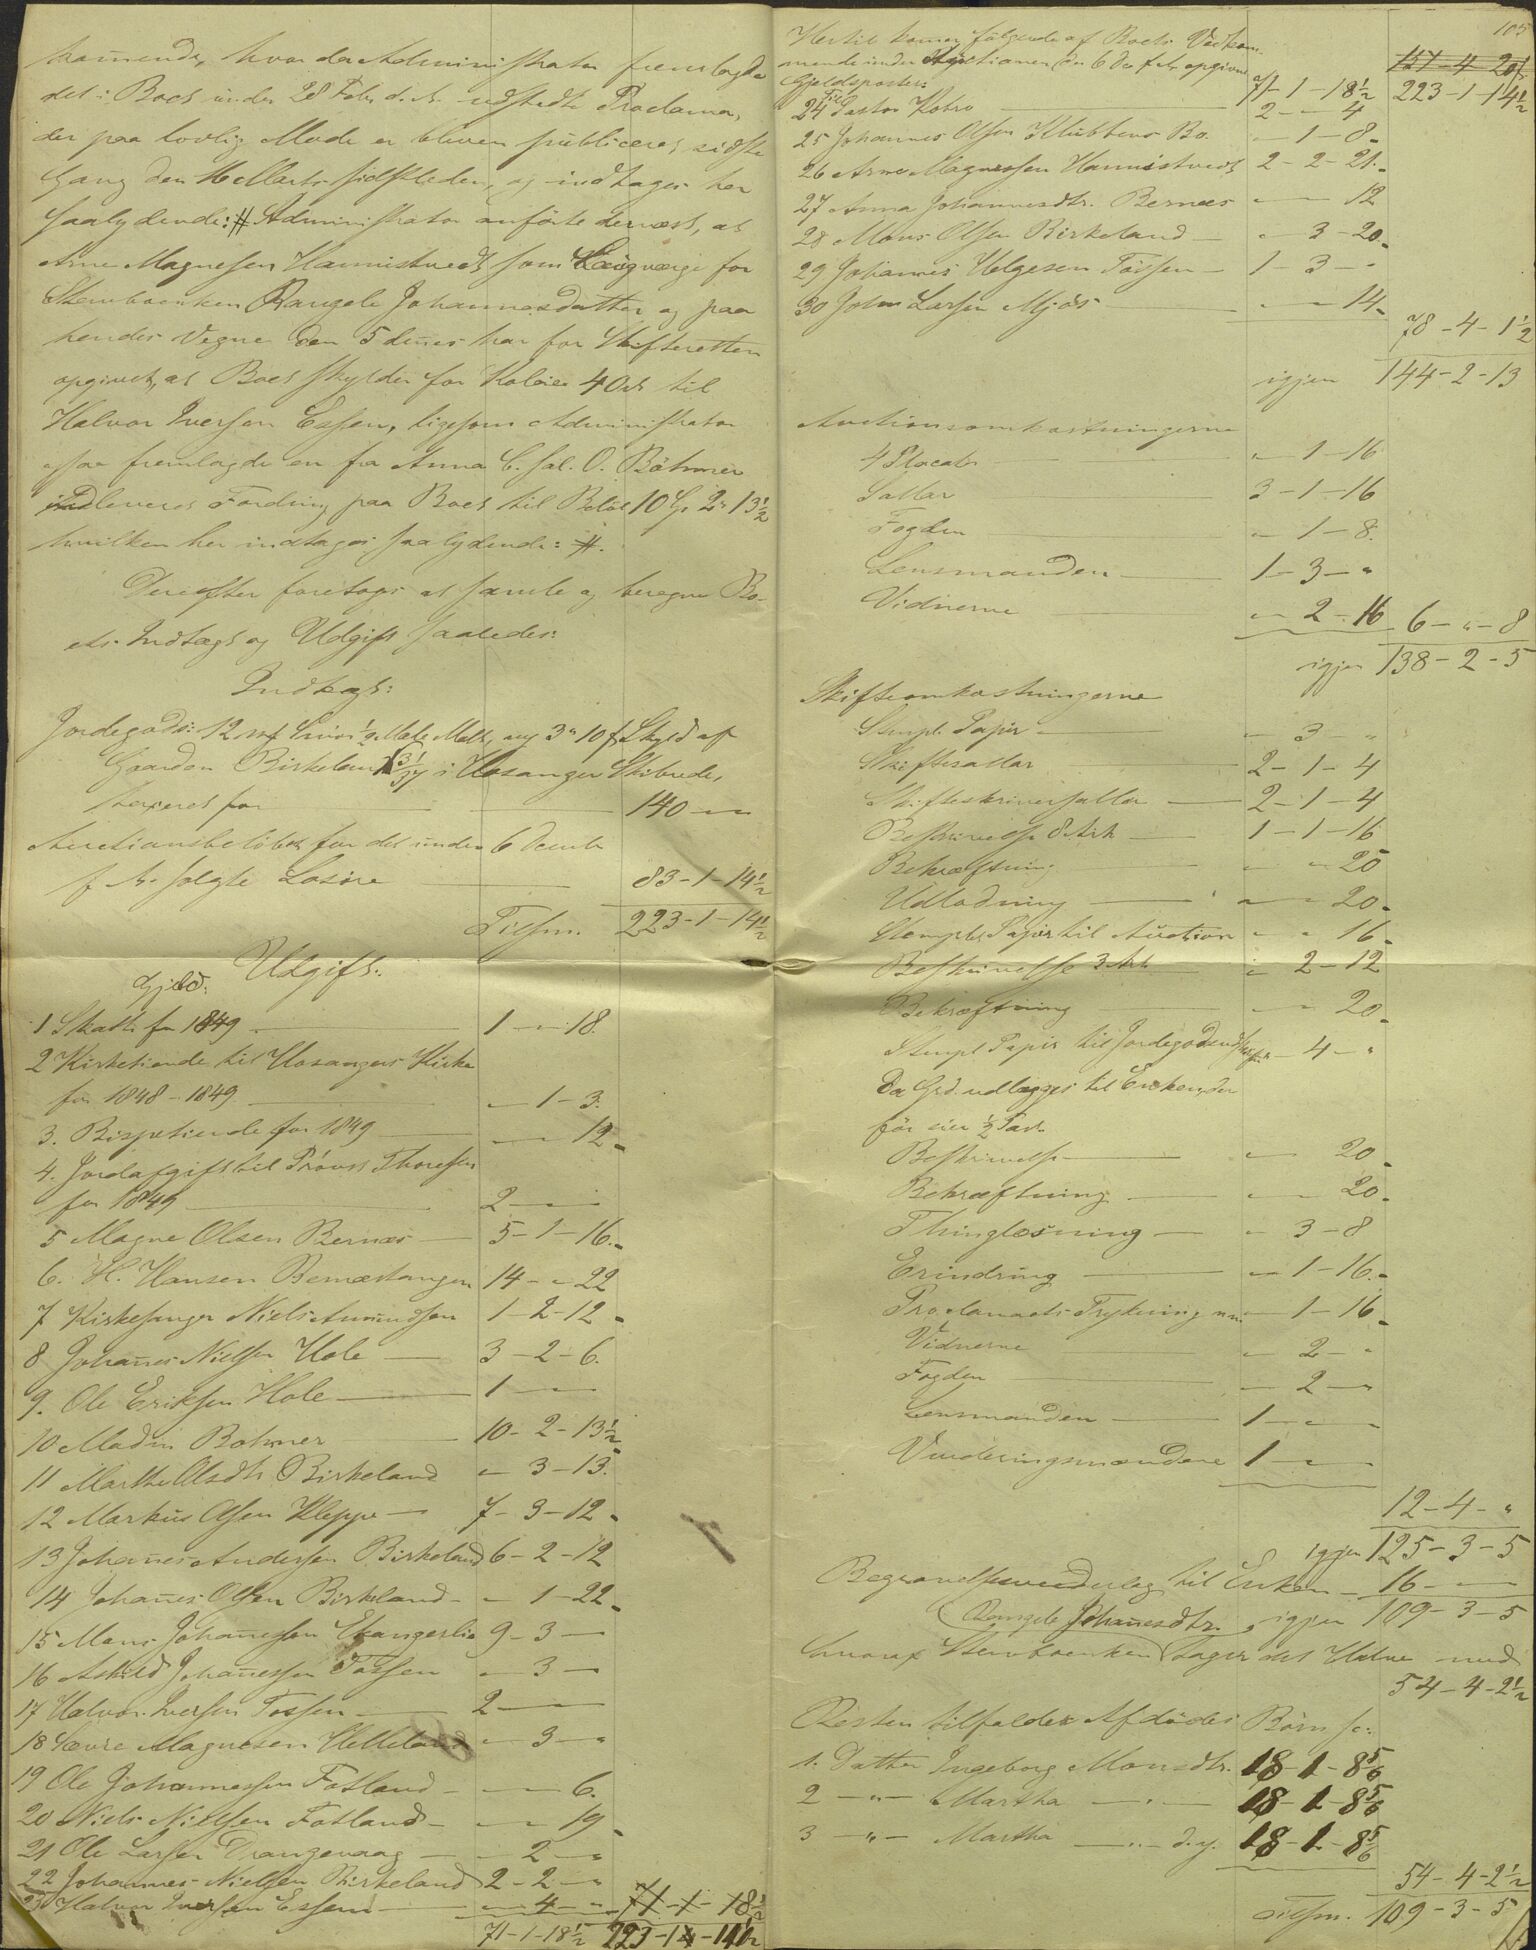 kom̅ende, hvor da Administrator fremlagde
det i Boet under 28 Febr. d. A. udstedte Proclama,
der paa lovlig Maade er bleven publiceret sidste
Gang den Marts sidstleden, og indtages her
saalydende: # Administrator anførte dernæst, at
Arne Magnesen Hannistvedt som Laugværge for
Stervboenken Rangele Johannesdatter og paa
hendes Vegne den 5 dennes har for Skifteretten
opgivet, at Boet skylder for 4 Ort til
Halvor Iversen Essen, ligesom Administrator
ogsaa fremlagde en fra Anna C. sal. O. Böhmer
indleveret Fordring paa Boet til Beløb 10 2 13½
hvilken her indtages saalydende: #.
Derefter foretoges at samle og beregne Bo-
ets Indtægt og Udgift saaledes:
Indtægt:
Jordegods: 12 mk Smör ½ Mæle Malt, ny 3 10 s Skyld af
Gaarden Birkeland i Hosanger Skibrede,
taxeret for 140 - "
Auctionsbeløbet for det under 6 Decemb
f. A. solgte Løsøre 83-1-14½
Tilsm. 223-1-14½
Udgift:
Gjæld:
1 Skatt for 1849 1 - " - 18.
2 Kirketiende til Hosangers Kirke
for 1848-1849 " - 1 - 3.
3. Bispetiende for 1849 " - " - 12
4. Jordafgift til Provst Thoresen
for 1849 2 - " - "
5 Magne Olsen Bernæs 5-1-16
6. H. Hansen Bernæstangen 14 - " - 22
7 Kirkesanger Niels Amundsen 1-2-12
8 Johan̅es Nielsen Hole 3-2-6.
9. Ole Eriksen Hole 1 - " - "
10 Madm Böhmer 10-2-13½
11 Marthe Olsdtr Birkeland " - 3 - 13.
12 Markus Olsen Kleppe 7-3-12
13 Johan̅es Andersen Birkeland 6-2-12
14 Johan̅es Olsen Birkeland " - 1 - 22
15 Mons Johan̅essen Eknngerlie 9-3 - "
16 Askild Johan̅essen Tössen " - 3 - "
17 Halvor Iversen Tossen 2 - " - "
18 Sævre Magnesen Helleland " - 3 - "
19 Ole Johannessen Fotland " - " - 6.
20 Niels Nielsen Fotland " - " - 19
21 Ole Larsen Drangevaag " - 2 - "
22 Johannes Nielsen Birkeland 2-2 - "
23 Halvor Iversen Essen " - 4 - " 71-1-18½
71-1-18½ 223-1-14½
105
Hertil kom̅er følgende af Boets Vedkom-
mende under Auctionen den 6 Dec f. A. opgivne 151-4-20½
Gjældsposter: 71-1-18½ 223-1-14½
24 Til Pastor Kobro 2 - " - 4
25 Johannes Olsen Klubbens Bo. " - 1 - 8
26 Arne Magnessen Hannistvedt 2-2-21
27 Anna Johannesdtr. Bernæs " - " - 12
28 Mons Olsen Birkeland " - 3 - 20
29 Johannes Helgesen Tössen 1-3 - "
30 John Larsen Mjös " - " - 14
78-4-1½
igjen 144-2-13
Auctionsomkostningerne
4 Placater " - 1 - 16
Sallar 3-1-16
Fogden " - 1 - 8.
Lensmanden 1-3 - "
Vidnerne " - 2 - 16 6 - " - 8
igjen 138-2-5
Skifteomkostningerne
Stempl. Papir " - 3 - "
Skiftesallar 2-1-4
Skifteskriversallar 2-1-4
Beskrivelse 8 Ark 1-1-16
Bekræftning " - " - 20
Udlodning " - " - 20
Stemplet Papir til Auction " - " - 16
Beskrivelse 3 Ark " - 2 - 12
Bekræftning " - " - 20
Stempl Papir til Jordegodsudlæg " - 4 - "
Da Grd. udlægges til Enken, der
før eier ½ Part
Beskrivelse " - " - 20
Bekræftning " - " - 20
Thinglæsning " - 3 - 8
Erindring " - 1 - 16
Proclamaets Trykning m " - 1 - 16
Vidnerne " - 2 - "
Fogden " - 2 - "
Lensmanden 1 - " - "
Vurderingsmændene 1 - " - "
12-4 - "
igjen 125-3-5
Begravelsesvederlag til Enken 16 - " - "
(Rangele Johan̅esdtr. igjen 109-3-5
hvoraf Stervboenken tager det Halve med
54-4-2½
Resten tilfalder Afdødes Börn sc:
1. Datter Ingeborg Monsdtr. 18-1-8⅚
2 - " - Martha - " - 18-1-8⅚
3 - " - Martha - " - d. y. 18-1-8⅚
54-4-2½
Tilsm. 109-3-5